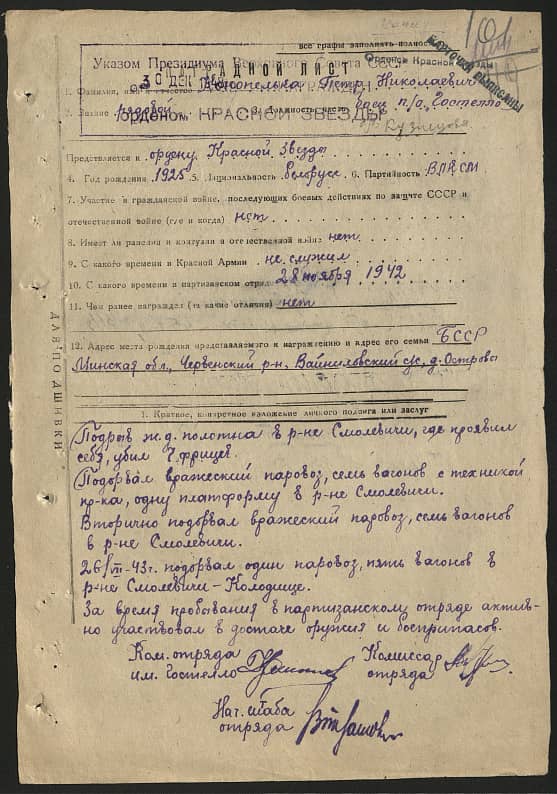 все графы заполнять
Указом Президиума Верховного Совета СССР
Ордена Красной Звезды
КАРТОЧКА ВЫПИСАНЫ
30 ДЕК
НАГРАДНОЙ ЛИСТ
1. Фамилия, имя и отчество Петр Николаевич
2. Звание рядовой 3. Должность, часть боец п/о Гостелло
орденом КРАСНОЙ ЗВЕЗДЫ
Кузнецова
Представляется к ордену Красной Звезды
4. Год рождения 1925 5. Национальность белорус 6. Партийность ВЛКСМ
7. Участие в гражданской войне, последующих боевых действиях по защите СССР и
отечественной войне (где и когда) нет
8. Имеет ли ранения и контузии в отечественной войне нет
9. С какого времени в Красной Армии не служил
10. С какого времени в партизанском отряде 28 ноября 1942
11. Чем ранее награжден (за какие отличия) нет
12. Адрес места рождения представляемого к награждению и адрес его семьи БССР
Минская обл., Червенский р-н, Вайниловский с/с, д. Острова
ДЛЯ ПОДШИВКИ
1. Краткое, конкретное изложение личного подвига или заслуг
Подрыв ж.д. полотна в р-не Смолевичи, где проявил
себя, убил 4 фрицев.
Подорвал вражеский паровоз, семь вагонов с техникой
пр-ка, одну платформу в р-не Смолевичи.
Вторично подорвал вражеский паровоз, семь вагонов
в р-не Смолевичи.
26/VII-43г. подорвал один паровоз, пять вагонов в
р-не Смолевичи-Колодище.
За время пребывания в партизанском отряде актив-
но участвовал в достаче оружия и боеприпасов.
Ком. отряда Комиссар
им. Гостелло отряда
Нач. штаба
отряда